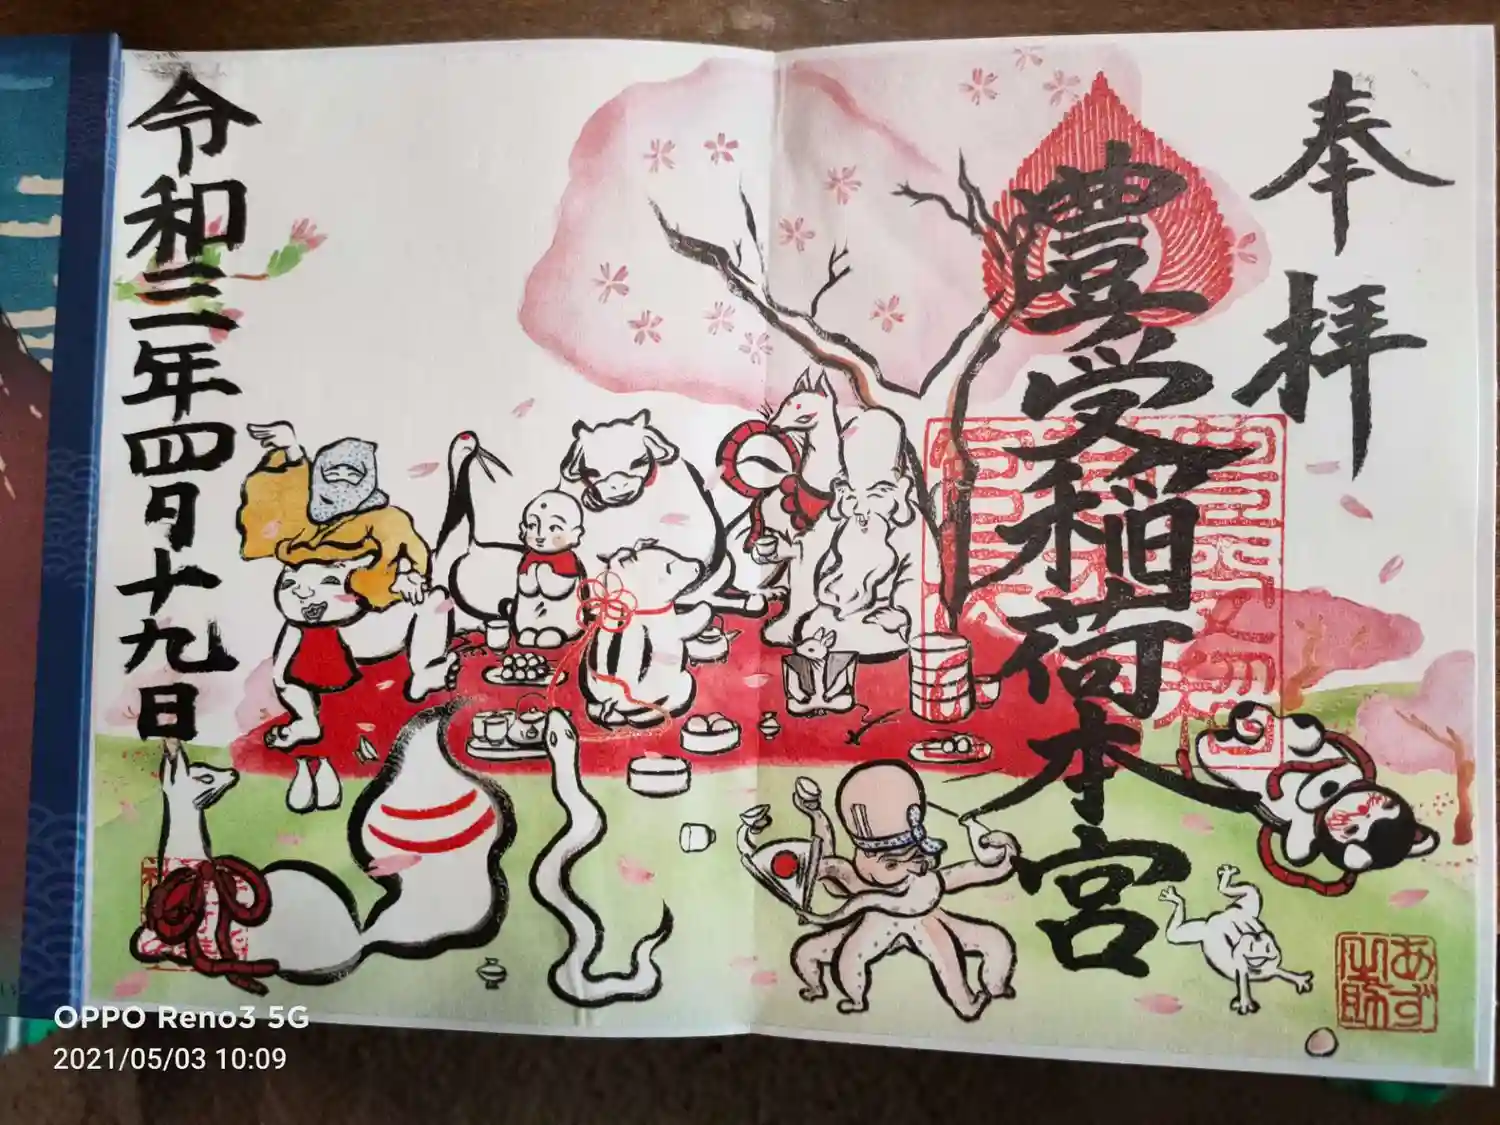 奉拝
豊受稲荷本宮
令和三年四月十九日
あず
OPPO Reno3 5G
2021/05/03 10:09